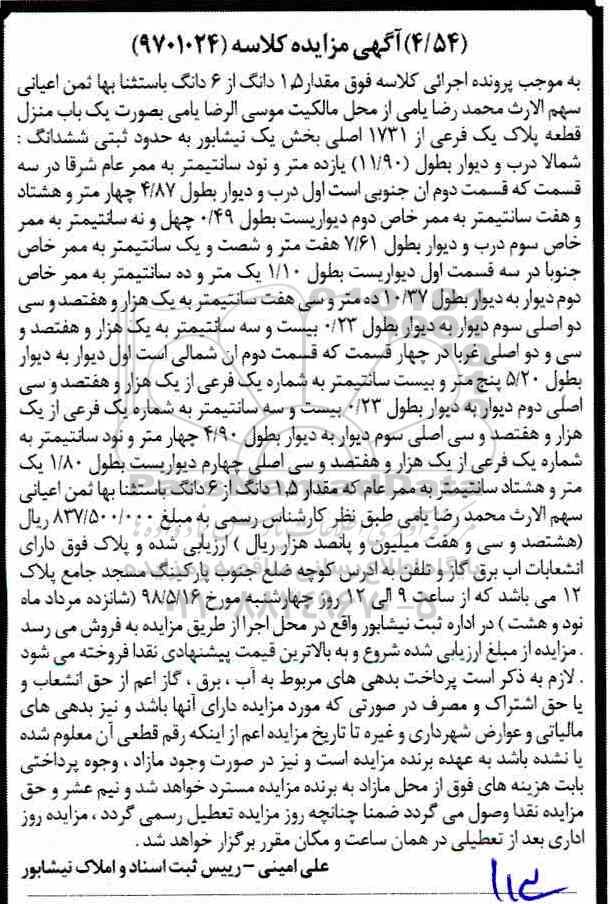 (۴/۵۴) آگهی مزایده کلاسه (۹۷۰۱۰۲۴)
به موجب پرونده اجرائی کلاسه فوق مقدار ۱٫۵ دانگ از ۶ دانگ باستثنا بها ثمن اعیانی
سهم الارث محمد رضا یامی از محل مالکیت موسی الرضا یامی بصورت یک باب منزل
قطعه پلاک یک فرعی از ۱۷۳۱ اصلی بخش یک نیشابور به حدود ثبتی ششدانگ :
شمالا درب و دیوار بطول (۱۱/۹۰) یازده متر و نود سانتیمتر به ممر عام شرقا در سه
قسمت که قسمت دوم ان جنوبی است اول درب و دیوار بطول ۴/۸۷ چهار متر و هشتاد
و هفت سانتیمتر به ممر خاص دوم دیواریست بطول ۰/۴۹ چهل و نه سانتیمتر به ممر
خاص سوم درب و دیوار بطول ۷/۶۱ هفت متر و شصت و یک سانتیمتر به ممر خاص
جنوبا در سه قسمت اول دیواریست بطول ۱/۱۰ یک متر و ده سانتیمتر به ممر خاص
دوم دیوار به دیوار بطول ۱۰/۳۷ ده متر و سی هفت سانتیمتر به یک هزار و هفتصد و سی
دو اصلی سوم دیوار به دیوار بطول ۰/۲۳ بیست و سه سانتیمتر به یک هزار و هفتصد و
سی و دو اصلی غربا در چهار قسمت که قسمت دوم ان شمالی است اول دیوار به دیوار
بطول ۵/۲۰ پنج متر و بیست سانتیمتر به شماره یک فرعی از یک هزار و هفتصد و سی
اصلی دوم دیوار به دیوار بطول ۰/۲۳ بیست و سه سانتیمتر به شماره یک فرعی از یک
هزار و هفتصد و سی اصلی سوم دیوار به دیوار بطول ۴/۹۰ چهار متر و نود سانتیمتر به
شماره یک فرعی از یک هزار و هفتصد و سی اصلی چهارم دیواریست بطول ۱/۸۰ یک
متر و هشتاد سانتیمتر به ممر عام که مقدار ۱٫۵ دانگ از ۶ دانگ باستثنا بها ثمن اعیانی
سهم الارث محمد رضا یامی طبق نظر کارشناس رسمی به مبلغ ۸۳۷/۵۰۰/۰۰۰ ریال
(هشتصد و سی و هفت میلیون و پانصد هزار ریال ) ارزیابی شده و پلاک فوق دارای
انشعابات اب برق گاز و تلفن به ادرس کوچه ضلع جنوب پارکینگ مسجد جامع پلاک
۱۲ می باشد که از ساعت ۹ الی ۱۲ روز چهارشنبه مورخ ۹۸/۵/۱۶ (شانزده مرداد ماه
نود و هشت ) در اداره ثبت نیشابور واقع در محل اجرا از طریق مزایده به فروش می رسد
. مزایده از مبلغ ارزیابی شده شروع و به بالاترین قیمت پیشنهادی نقدا فروخته می شود
. لازم به ذکر است پرداخت بدهی های مربوط به آب ، برق ، گاز اعم از حق انشعاب و
یا حق اشتراک و مصرف در صورتی که مورد مزایده دارای آنها باشد و نیز بدهی های
مالیاتی و عوارض شهرداری و غیره تا تاریخ مزایده اعم از اینکه رقم قطعی آن معلوم شده
یا نشده باشد به عهده برنده مزایده است و نیز در صورت وجود مازاد ، وجوه پرداختی
بابت هزینه های فوق از محل مازاد به برنده مزایده مسترد خواهد شد و نیم عشر و حق
مزایده نقدا وصول می گردد ضمنا چنانچه روز مزایده تعطیل رسمی گردد ، مزایده روز
اداری بعد از تعطیلی در همان ساعت و مکان مقرر برگزار خواهد شد .
علی امینی – رییس ثبت اسناد و املاک نیشابور